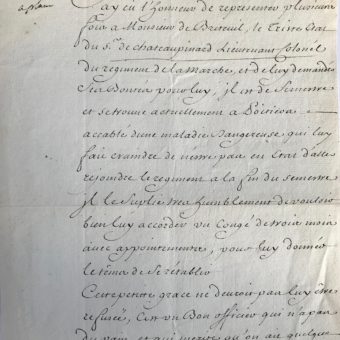 J'ay eu l'honneur de representer plusieurs
fois a Monsieur de Breteuil, le Triste Etat
du S.r de chateaupinard Lieutenant Colonel
du regiment de la marche, et de luy demander
Ses Bontes pour luy, il est de Semestre
et se trouve actuellement a
accablé d'une maladie Dangereuse qui luy
fait craindre de n'estre pas en Etat d'aller
rejoindre le regiment a la fin du Semestre
il le Suplie tres humblement de vouloir
bien luy accorder un Congé de trois mois
avec appointements, pour luy donner
le tems de Se rétablir
Cette petite grace ne devroit pas luy être
refusée, C'est un Bon officier qui n'a pas
du pain, et qui merite qu'on ait quelque